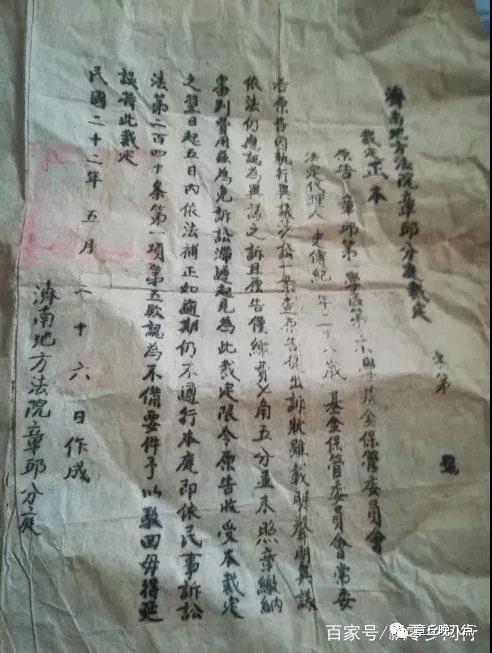 濟南地方法院章邱分庭裁定
字第 號
裁定正本
原告 章邱第一學區第一小學基金保管委員會
法定代理人 史傳紀 年二十八歲 基金保管委員會常委
右原告因執行異議涉訟一案查原告提出訴狀雖載明聲明異議
依法仍應認為異議之訴且原告僅繳費 角五分並未照章繳納
審判費用茲為免訴訟滯遲起見為此裁定限令原告收受本裁定
之翌日起五日內依法補正如逾期仍不遵行本庭即依民事訴訟
法第二百四十條第一項第五款認為不備要件予以駁回毋得延
誤特此裁定
民國二十二年五月二十六日作成
濟南地方法院章邱分庭
百家号/
章丘晚八点